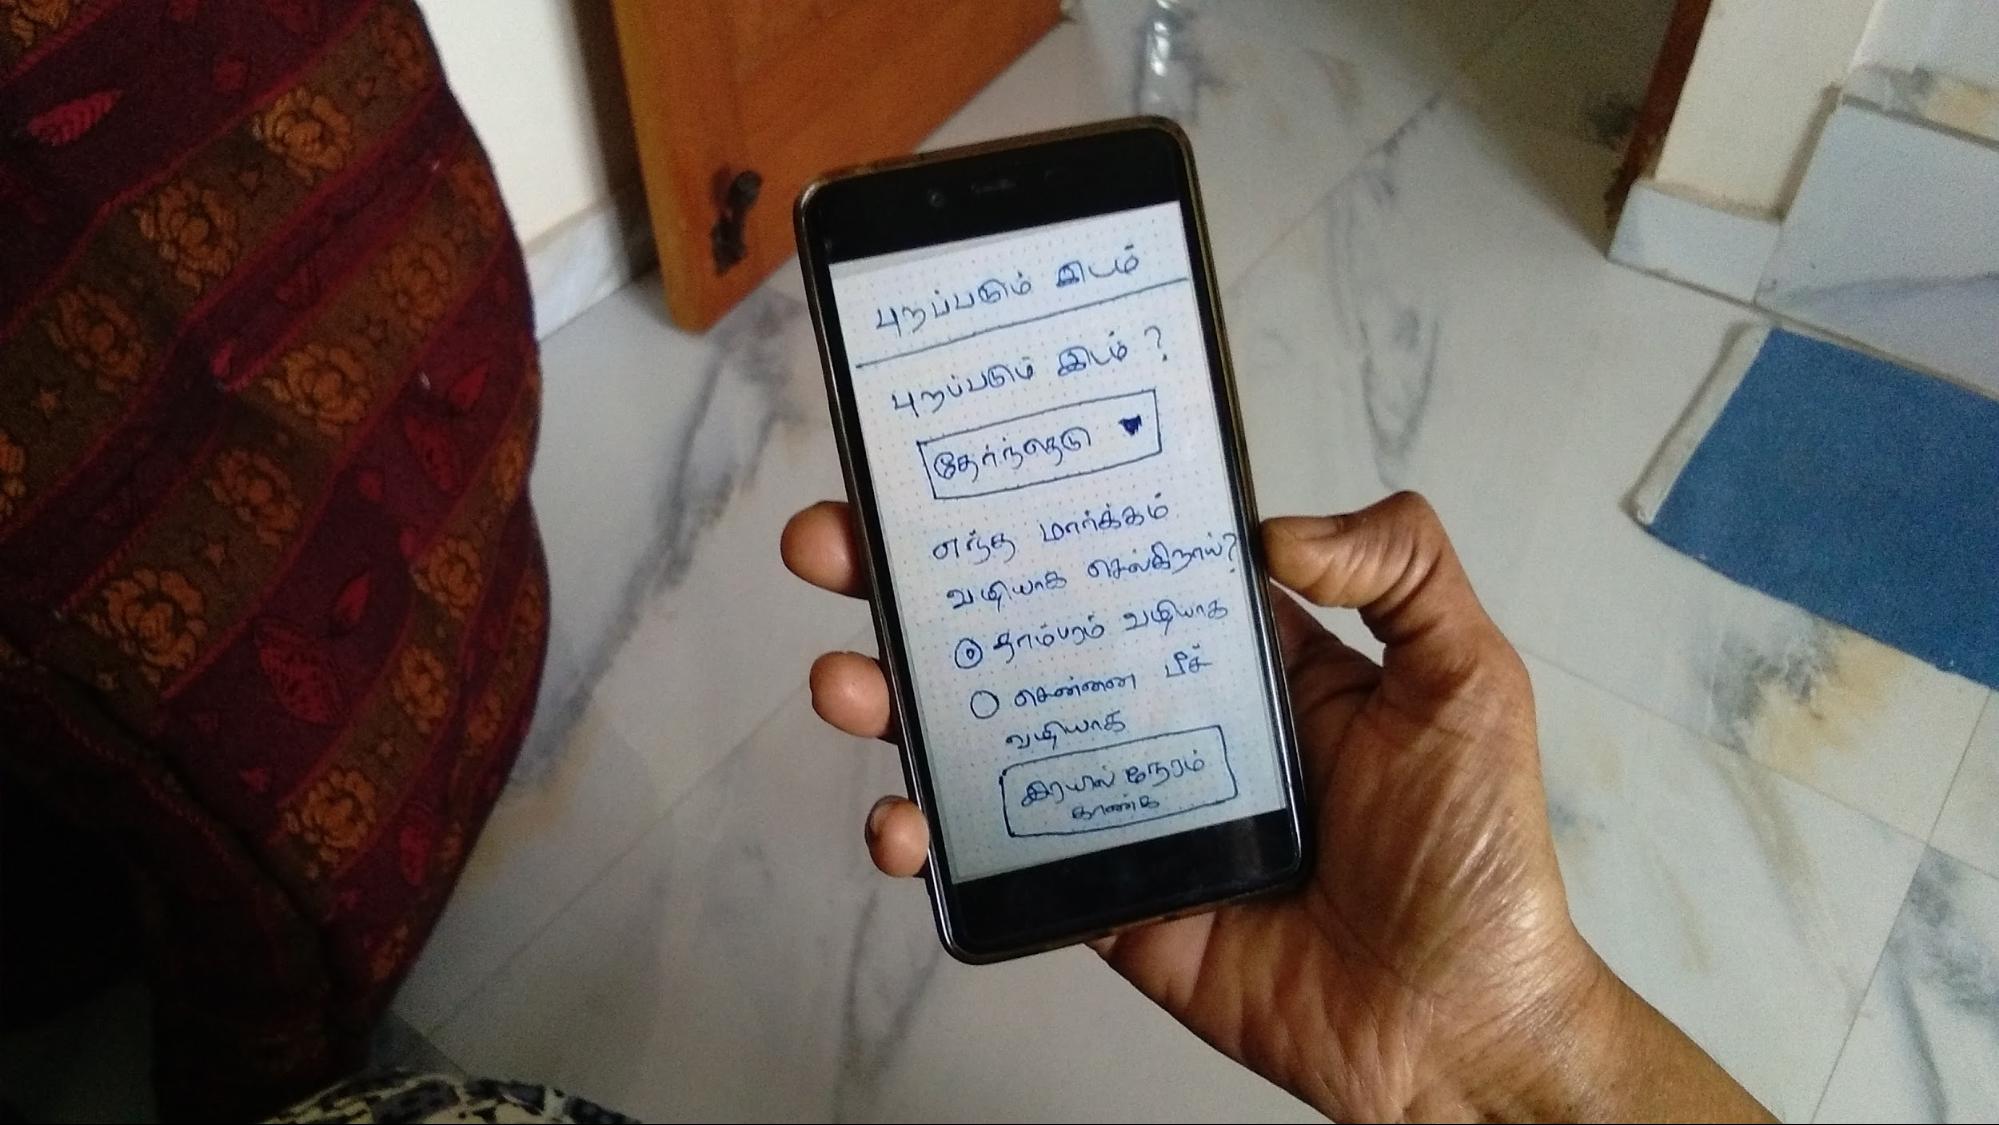 புறப்படும் இடம்
புறப்படும் இடம் ?
தேர்ந்தெடு
எந்த மார்க்கம்
வழியாக செல்கிறாய்?
தாம்பரம் வழியாக
சென்னை பீச்
வழியாக
இரயில் நேரம்
காண்க